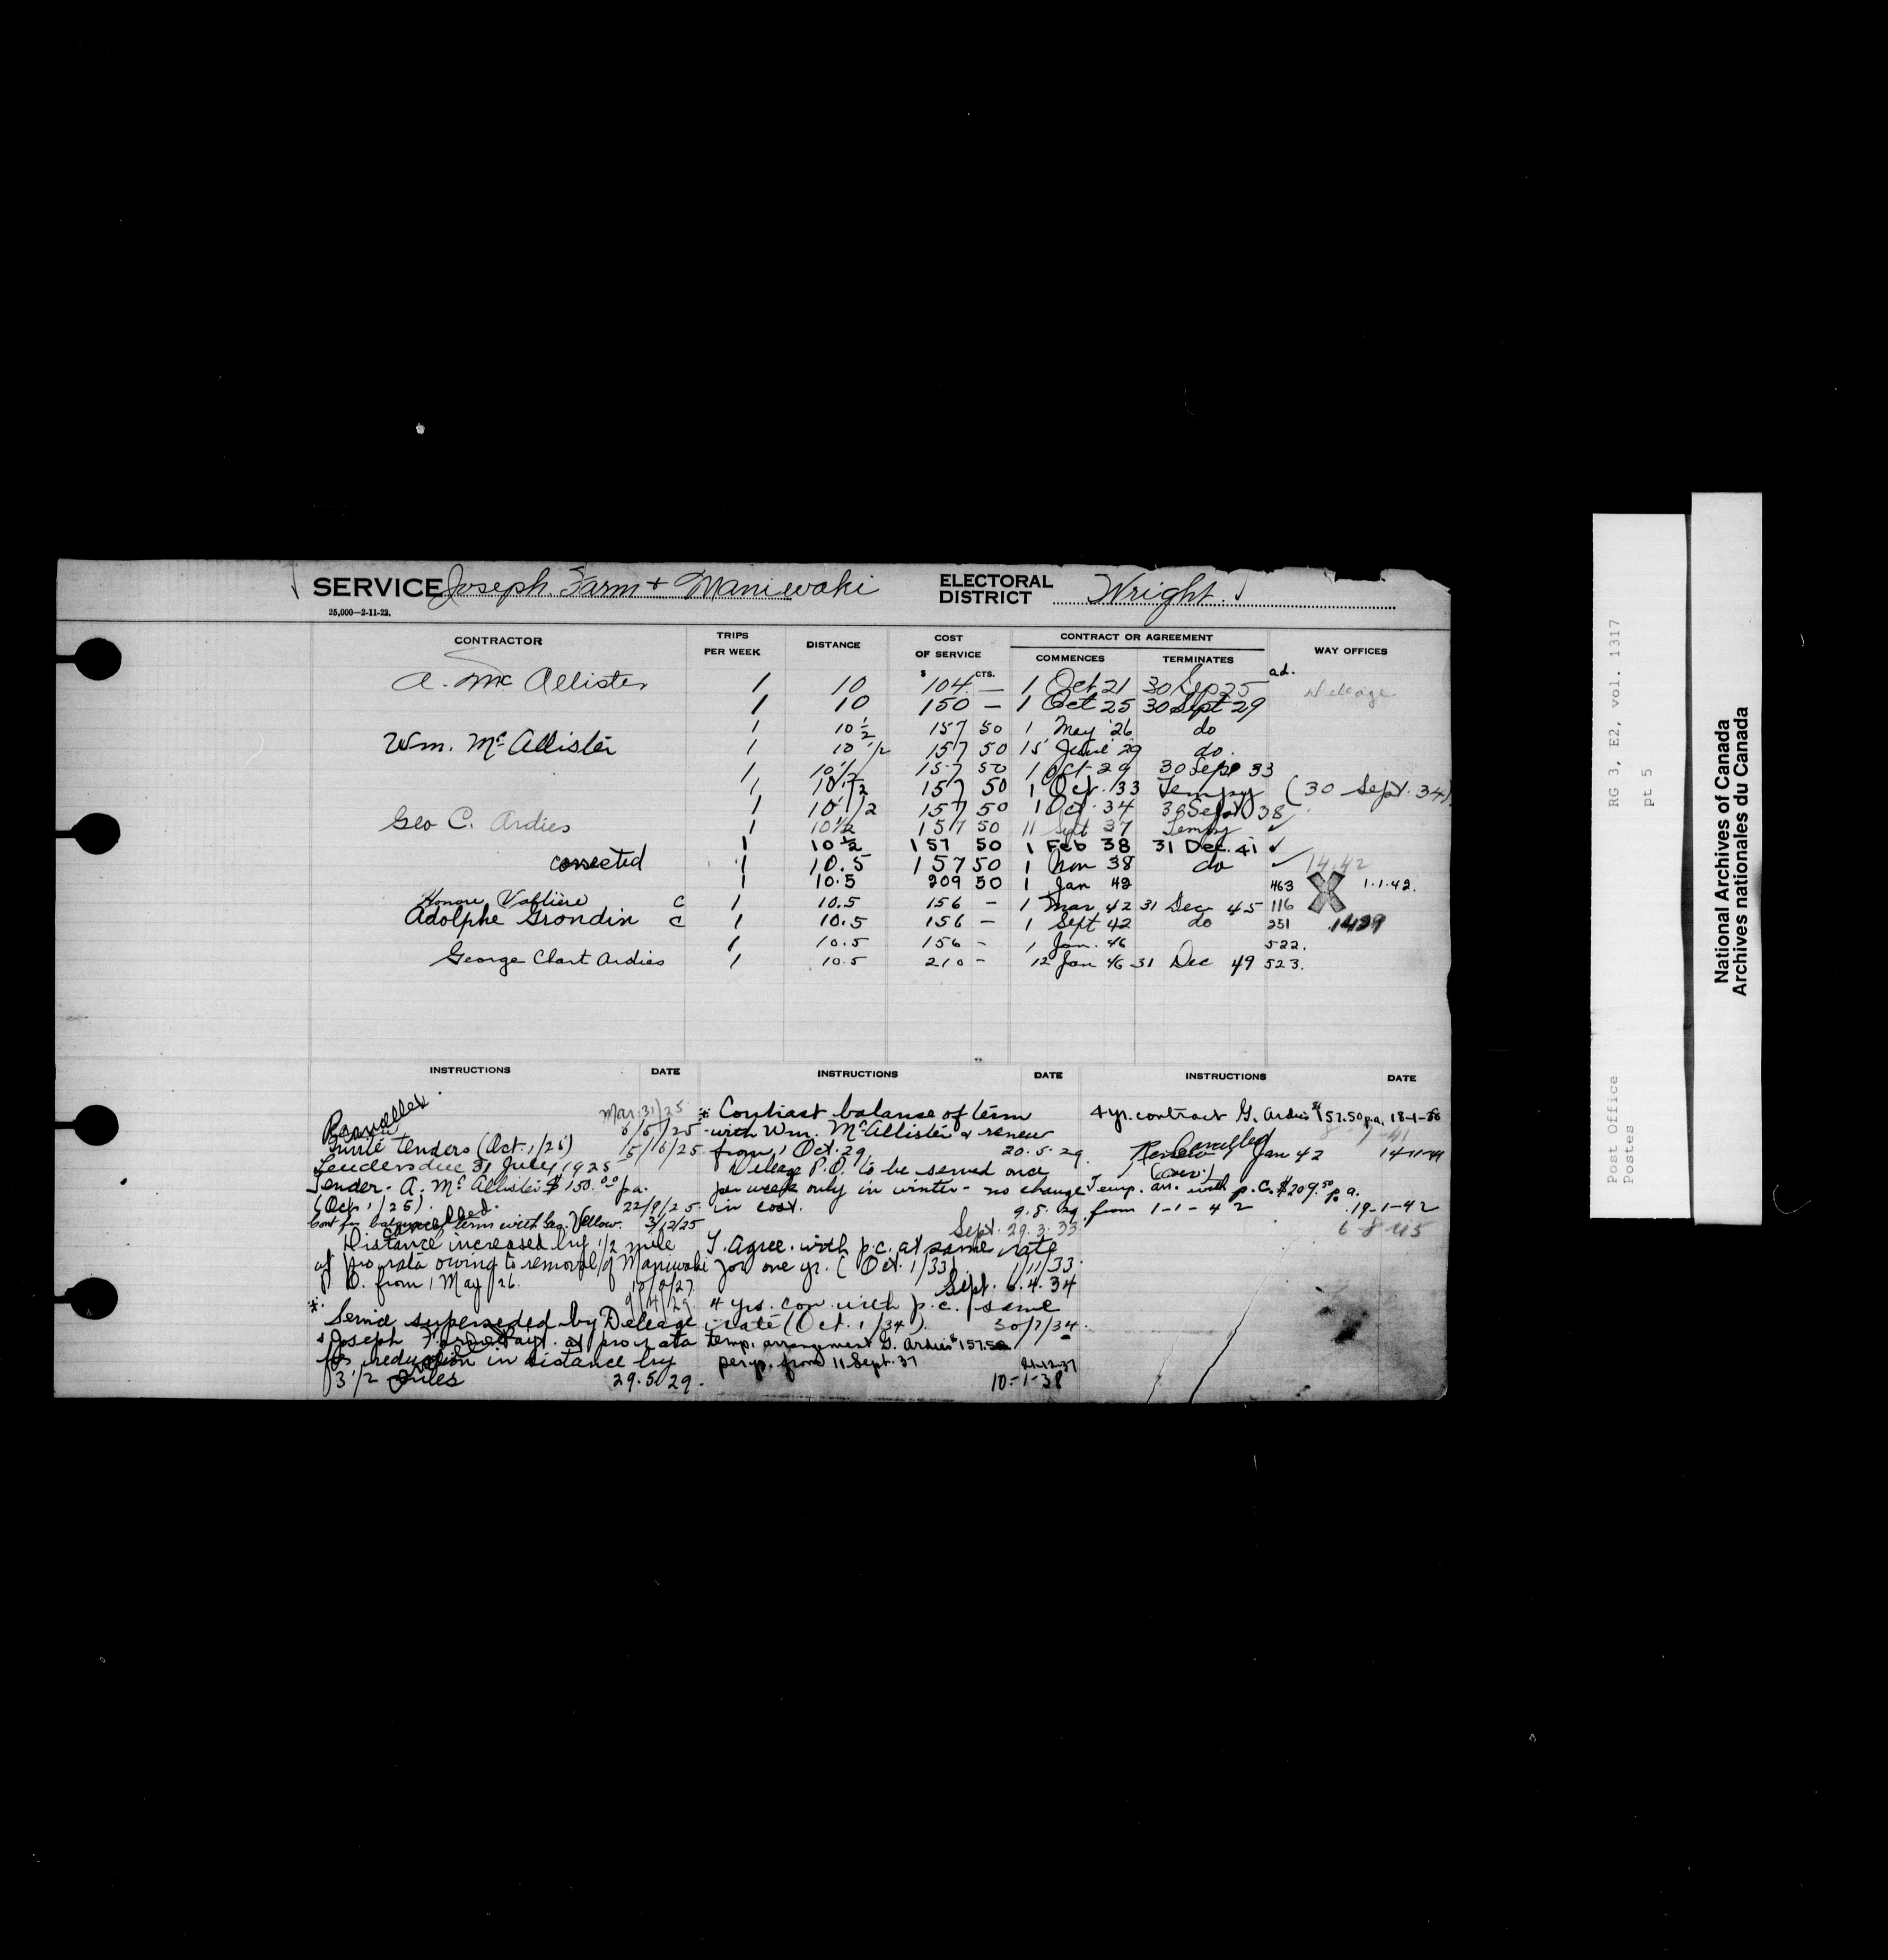 SERVICE Joseph Farm & Maniwaki ELECTORAL DISTRICT Wright
25,000—2-11-22.
CONTRACTOR TRIPS PER WEEK DISTANCE COST OF SERVICE CONTRACT OR AGREEMENT WAY OFFICES
COMMENCES TERMINATES
$ CTS.
A. McAllister 1 10 104 — 1 Oct 21 30 Sep 25 ad. Deleage
1 10 150 — 1 Oct 25 30 Sept 29
1 10 1/2 157 50 1 May '26 do
Wm. McAllister 1 10 1/2 157 50 15 June 29 do.
1 10 1/2 157 50 1 Oct 29 30 Sept 33
1 10 1/2 157 50 1 Oct. 33 Tempy (30 Sept. 34)
1 10 1/2 157 50 1 Oct 34 30 Sept 38
Geo C. Ardies 1 10 1/2 157 50 11 Sept 37 Tempy ✓
1 10 1/2 157 50 1 Feb 38 31 Dec. 41 ✓
corrected 1 10.5 157 50 1 Nov 38 do ✓ 14.42
1 10.5 209 50 1 Jan 42 463 X 1.1.42.
Honore Vallière C 1 10.5 156 — 1 Mar 42 31 Dec 45 116
Adolphe Grondin C 1 10.5 156 — 1 Sept 42 do 251 1429
1 10.5 156 - 1 Jan. 46 522.
George Chart Ardies 1 10.5 210 - 12 Jan 46 31 Dec 49 523.
INSTRUCTIONS DATE INSTRUCTIONS DATE INSTRUCTIONS DATE
Cancelled Mar. 31/25
Invite tenders (Oct. 1/25) 15/5/25
Tenders due 31 July, 1925
Tender - A. McAllister $150.00 p.a.
(Oct. 1/25). 22/9/25
Cont for balance of term with Geo. Vellow. 3/12/25
Cancelled.
Distance increased by 1/2 mile
at pro rata owing to removal of Maniwaki
P.O. from 1 May 26.
9/4/29
* Service superseded by Deleage
& Joseph Farm Payt. at pro rata
for reduction in distance by
3 1/2 miles 29.5.29.
* Contract balance of term
with Wm. McAllister & renew
from 1 Oct. 29 20.5.29.
Deleage P.O. to be served once
per week only in winter - no change
in cost. 9.5.29
Sept. 29.3.33
T. Agree. with p.c. at same rate
for one yr. (Oct. 1/33). 1/11/33.
Sept. 6.4.34
4 yrs. con. with p.c. same
rate (Oct. 1/34). 30/7/34.
Temp. arrangement G. Ardies $157.50
per yr. from 11 Sept. 37 21-12-37
10-1-38
4 yr. contract G. Ardies $157.50 p.a. 18-1-38
Cancelled
Renew 1 Jan 42 14-11-41
Temp. arr. with p.c. $209.50 p.a.
from 1-1-42 19-1-42
6-8-45
Post Office RG 3, E2, vol. 1317
Postes pt 5
National Archives of Canada
Archives nationales du Canada